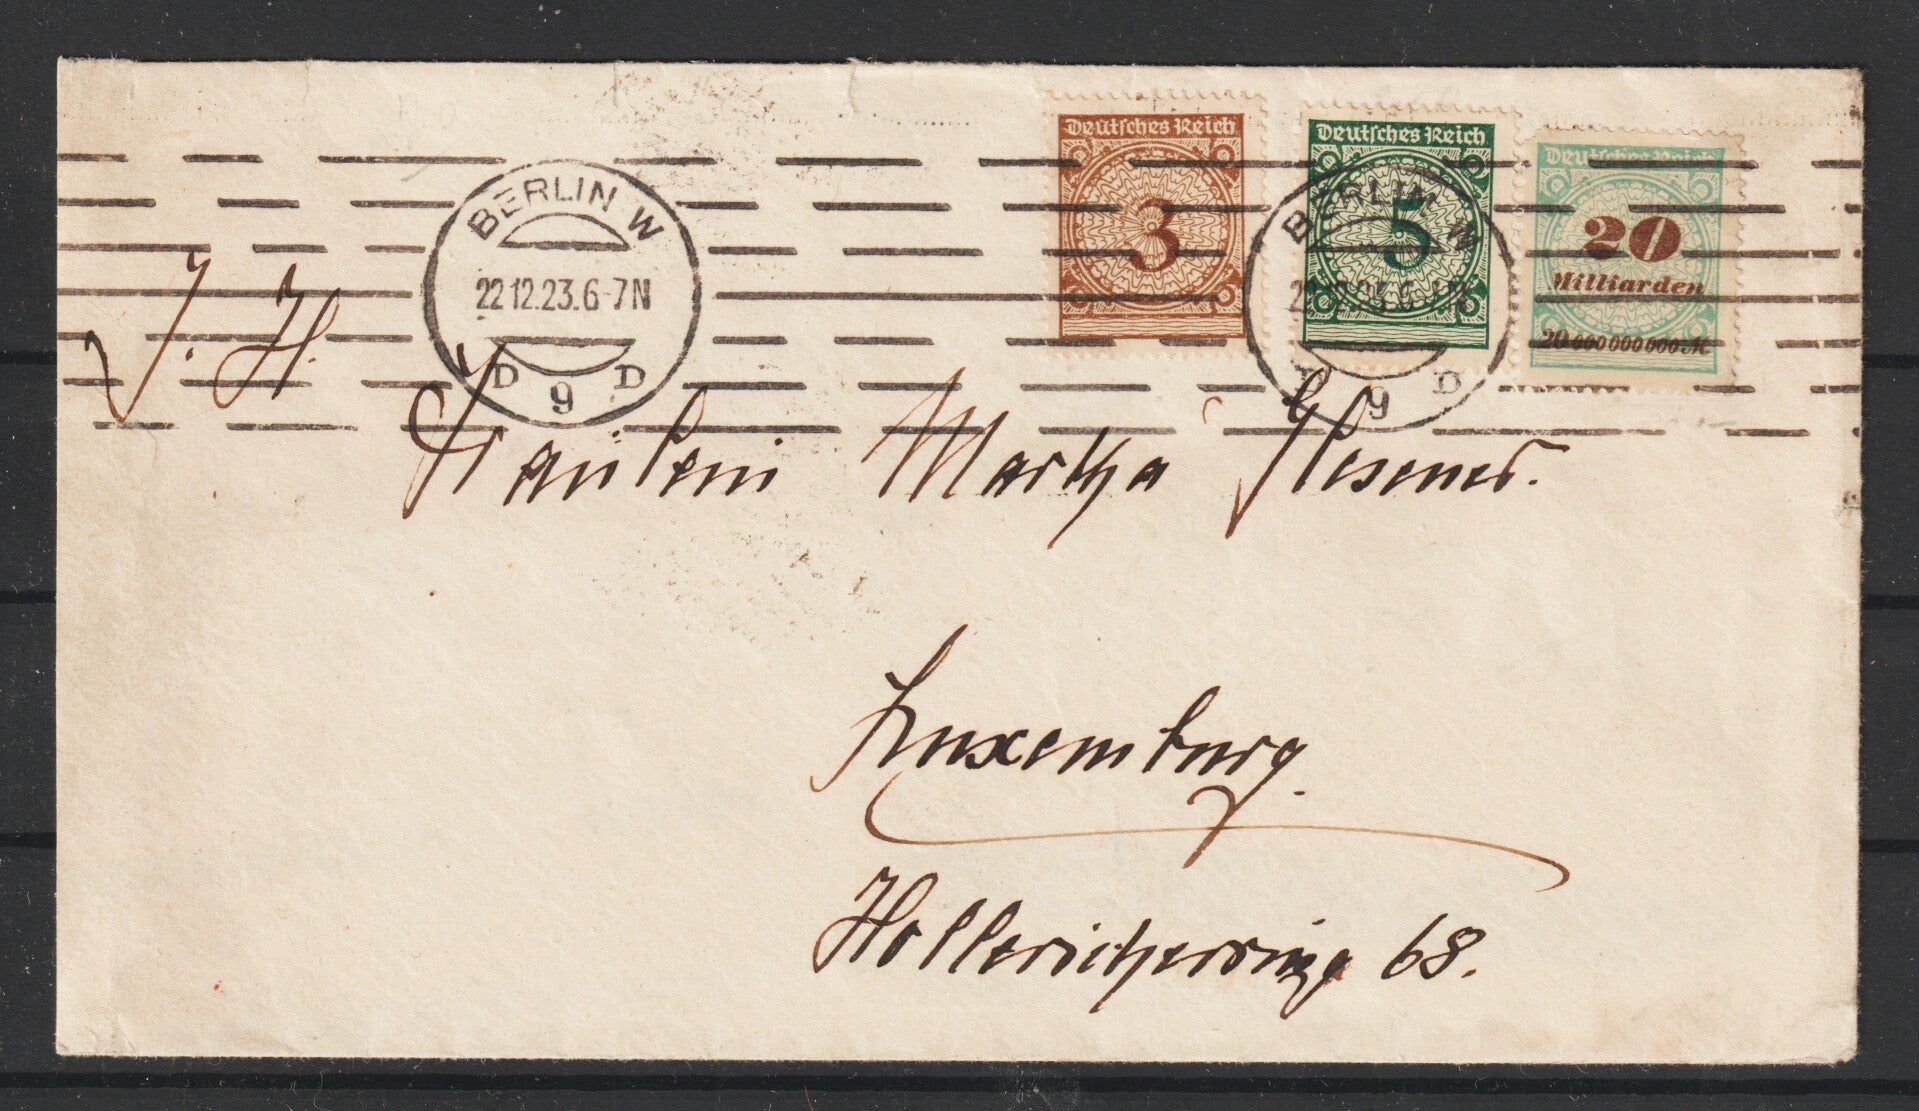 Deutsches Reich
3
Deutsches Reich
5
Deutsches Reich
20
Milliarden
20 000 000 000 M
BERLIN W
22.12.23.6-7N
D 9 D
BERLIN W
22.12.23.6-7N
D 9 D
J. H.
Fräulein Martha
Luxemburg.
68.